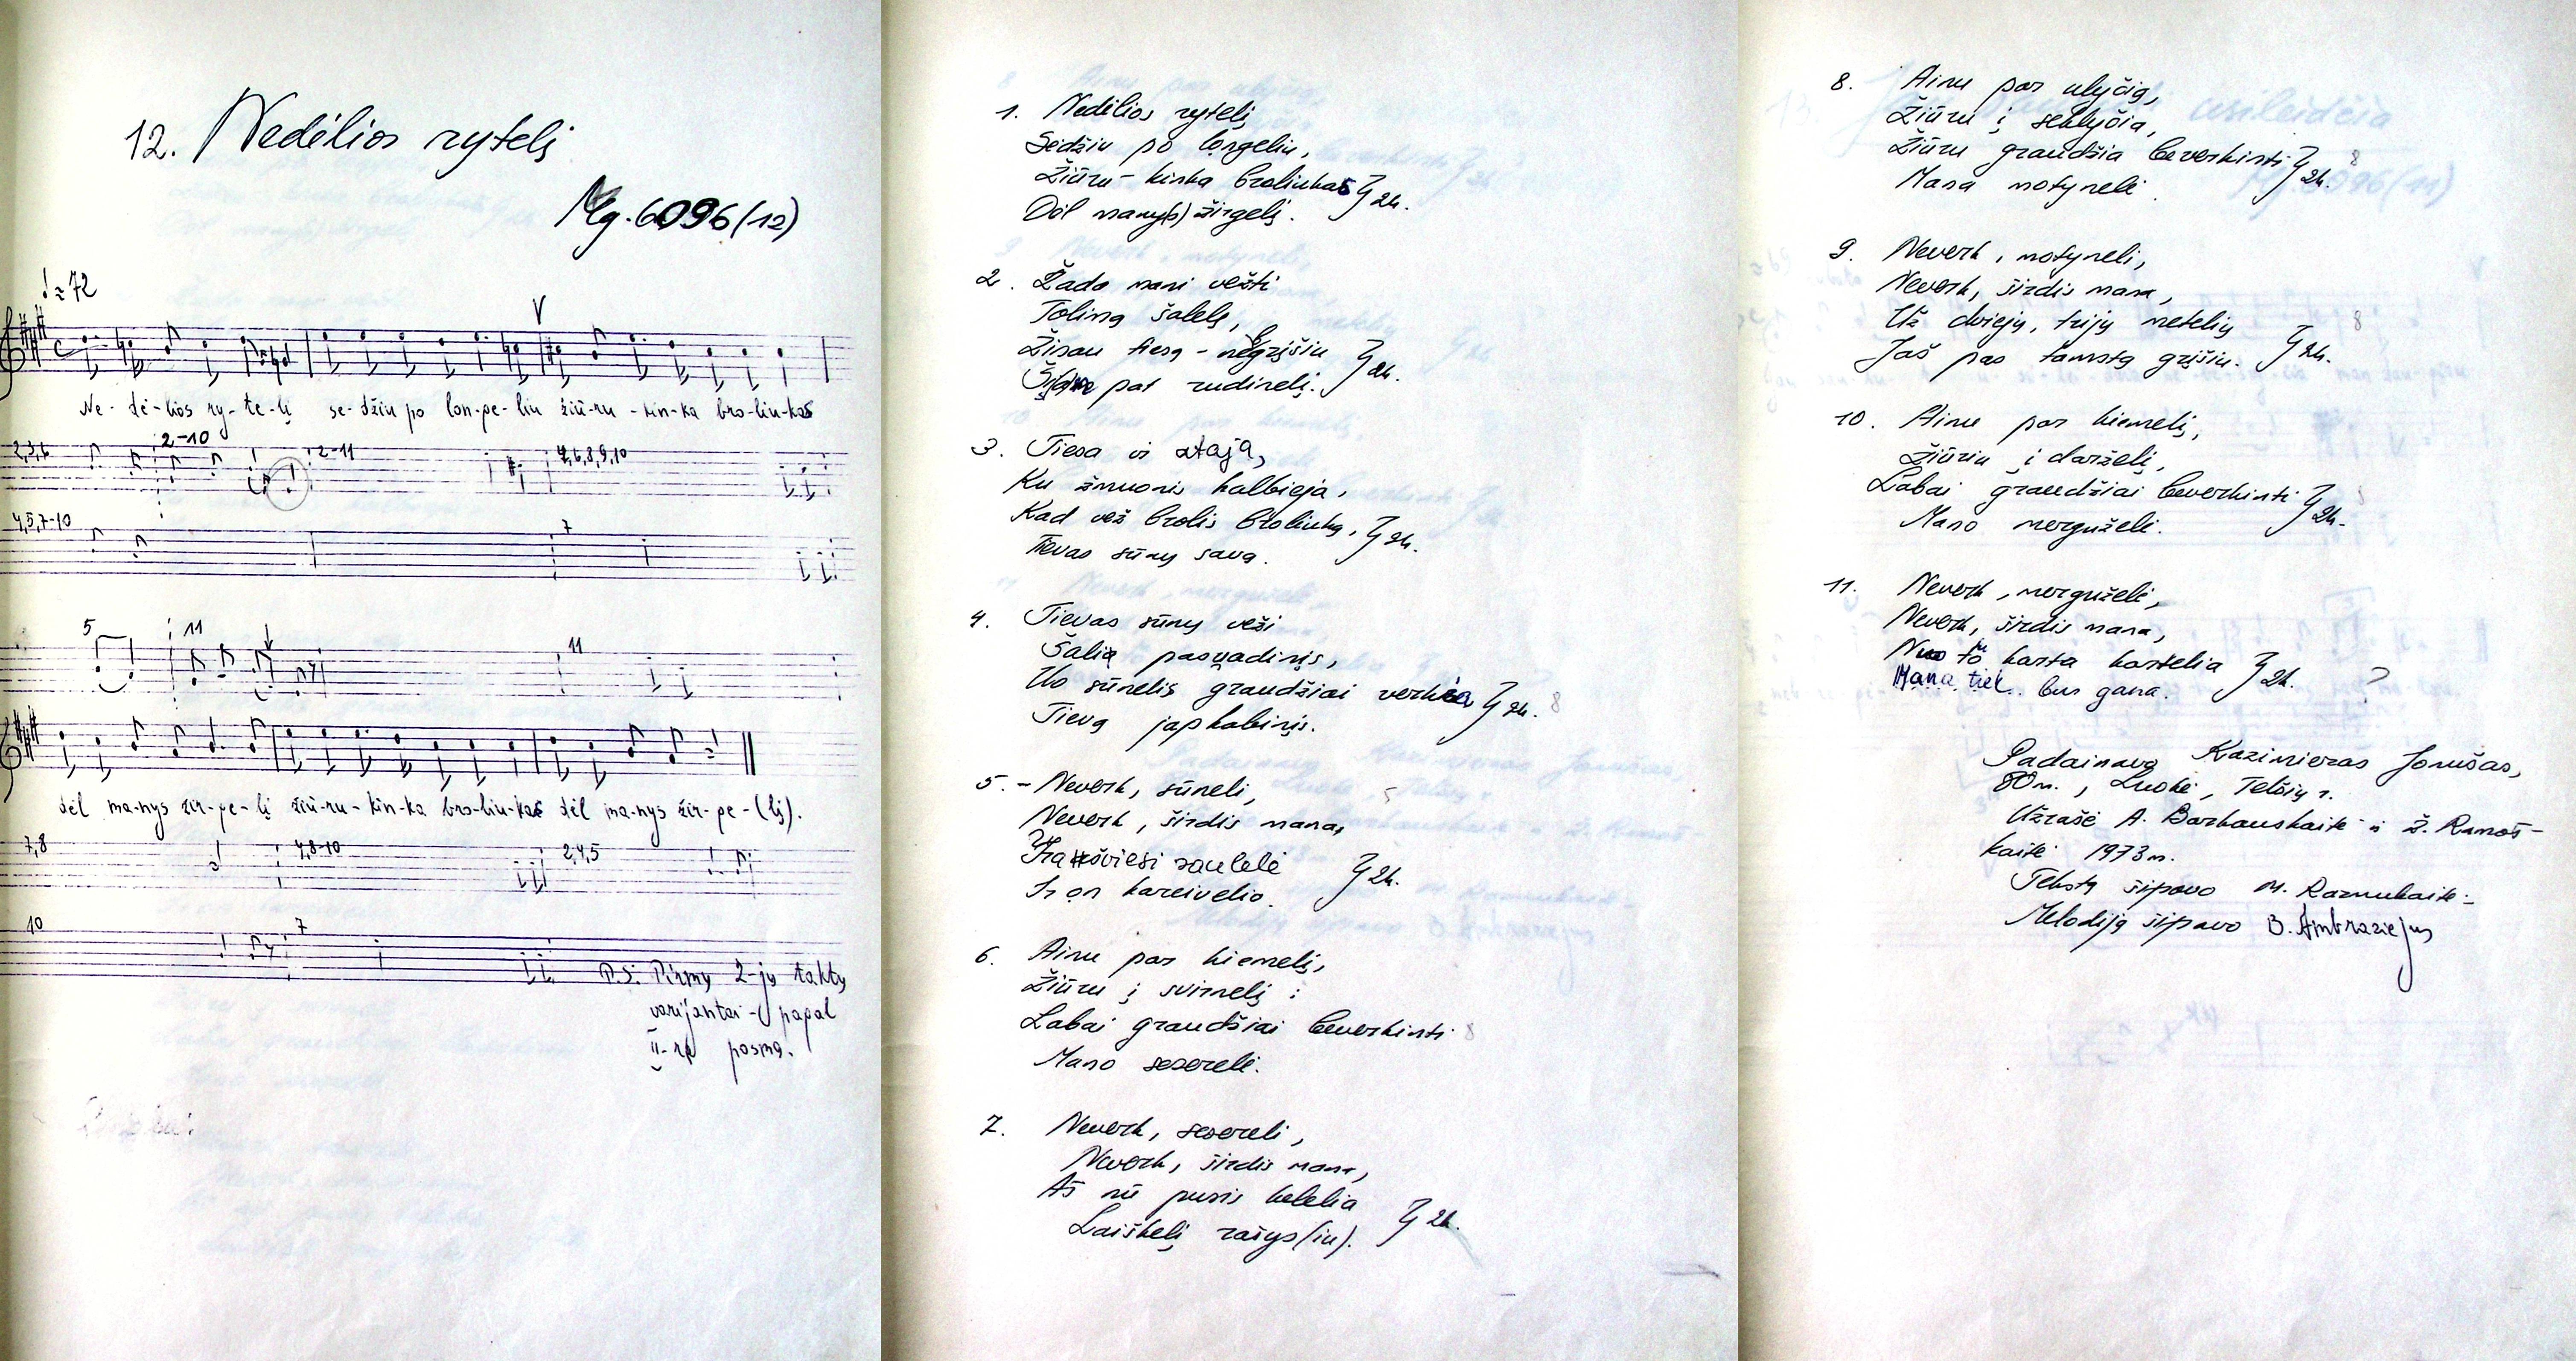 12. Nedėlios rytelį
Mg. 6096 (12)
♩ = 72
V
Ne- dė-lios ry- te-lį se-džiu po lon-ge-liu žiū-ru - kin-ka bro-liu-kas
2,3,6 2-10 2-11 4,6,8,9,10
4,5,7-10 7
5 11 11
dėl ma-nys žir-ge-lį žiū-ru - kin-ka bro-liu-kas dėl ma-nys žir-ge-(lį).
7,8 4,8-10 2,4,5
10 7
P.S. Pirmų 2-jų taktų
varijantai - pagal
II-rą posmą.
1. Nedėlios rytelį
Sėdžiu po longeliu,
Žiūru - kinka broliukas } 2k.
Dėl many(s) žirgelį.
2. Žada mani vežti
Tolimą šalelę,
Žinau tiesą - negrįšiu } 2k.
par rudinelį.
3. Tiesa ir ataja,
Ku žmuonis kalbieja,
Kad vež brolis broliuką, } 2k.
Tievas sūnų sava.
4. Tievas sūnų veži
Šalią pasųadinįs,
Uo sūnelis graudžiai verkia } 2k. 8
Tievą japkabinįs.
5. - Neverk, sūneli, 5
Neverk, širdis mana,
saulelė } 2k.
Ir on kareivelio.
6. Ainu par kiemelį,
Žiūru į svirnelį :
Labai graudžiai beverkinti 8
Mano seserelė.
7. Neverk, sesereli,
Neverk, širdis mana,
Aš nū pusis kelelia } 2k.
Laiškelį rašys(iu).
8. Ainu par ulyčią,
Žiūru į seklyčia,
Žiūru graudžia beverkinti } 2k. 8
Mana motynelė.
9. Neverk, motyneli,
Neverk, širdis mana,
Už dviejų, trijų metelių } 2k. 8
Jaš pas tamstą grįšiu.
10. Ainu par kiemelį,
Žiūriu į darželį,
Labai graudžiai beverkinti } 2k.
Mano merguželė.
11. Neverk, merguželė,
Neverk, širdis mana,
Nuo tō karta kartelia } 2k. ?
Mana tiek bus gana.
Padainavo Kazimieras Jonušas,
80 m., Luokė, Telšių r.
Užrašė A. Barkauskaitė ir Ž. Ramoš-
kaitė 1973 m.
Tekstą šifravo M. Razmukaitė
Melodiją šifravo B. Ambraziejus